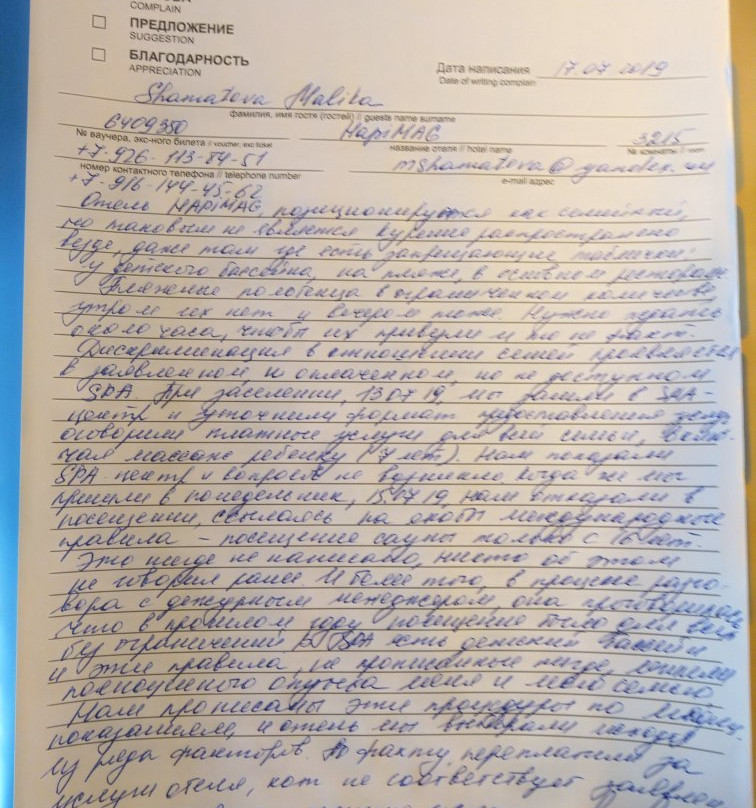 COMPLAIN
ПРЕДЛОЖЕНИЕ
SUGGESTION
БЛАГОДАРНОСТЬ
APPRECIATION
Дата написания 17.07.2019
Date of writing complain
Shamatova Malika
фамилия, имя гостя (гостей) // guests name surname
6409350 MapiMAG 3215
№ ваучера, экс-ного билета // voucher, exc ticket название отеля // hotel name № комнаты // room
+7-926-113-84-51 mshamatova@yandex.ru
номер контактного телефона // telephone number e-mail адрес
+7-916-144-45-62
Отель MAPiMAG, позиционируется как семейный,
но таковым не является. Курение распространено
везде, даже там где есть запрещающие таблички:
у детского бассейна, на пляже, в основном ресторане.
Пляжные полотенца в ограниченном количестве
утром их нет и вечером тоже. Нужно ждать
около часа, чтобы их привезли и то не факт.
Дискриминация в отношении семей проявляется
в заявленном, и оплаченном, но не доступном
SPA. При заселении, 13.07.19, мы зашли в SPA-
центр и уточнили формат предоставления услуг
оговорили платные услуги для всей семьи, вклю-
чая массаж ребенку (7 лет). Нам показали
SPA-центр и вопросов не возникло. Когда же мы
пришли в понедельник, 15.07.19, нам отказали в
посещении, ссылаясь на якобы международные
правила - посещение сауны только с 16 лет.
Это нигде не написано, никто об этом
не говорил ранее. И более того, в процессе разго-
вора с дежурным менеджером, она проговорилась
что в прошлом году посещение было для всех
без ограничений. В SPA есть детский бассейн
и эти правила, не прописанные нигде, лишили
полноценного отдыха меня и мою семью.
Нам прописаны эти процедуры по
показаниям, и отель мы выбирали исходя
из ряда факторов. По факту, переплатили за
услуги отеля, кот. не соответствует